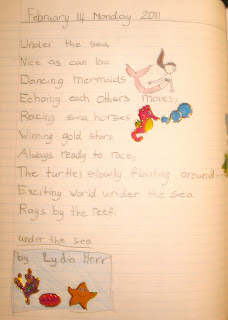 February 14 Monday 2011
Under the sea
Nice as can be
Dancing mermaids
Echoing each others moves,
Racing sea horses
Winning gold stars
Always ready to race,
The turtles slowly floating around...
Exciting world under the sea
Rays by the reef.
under the sea
by Lydia Herr